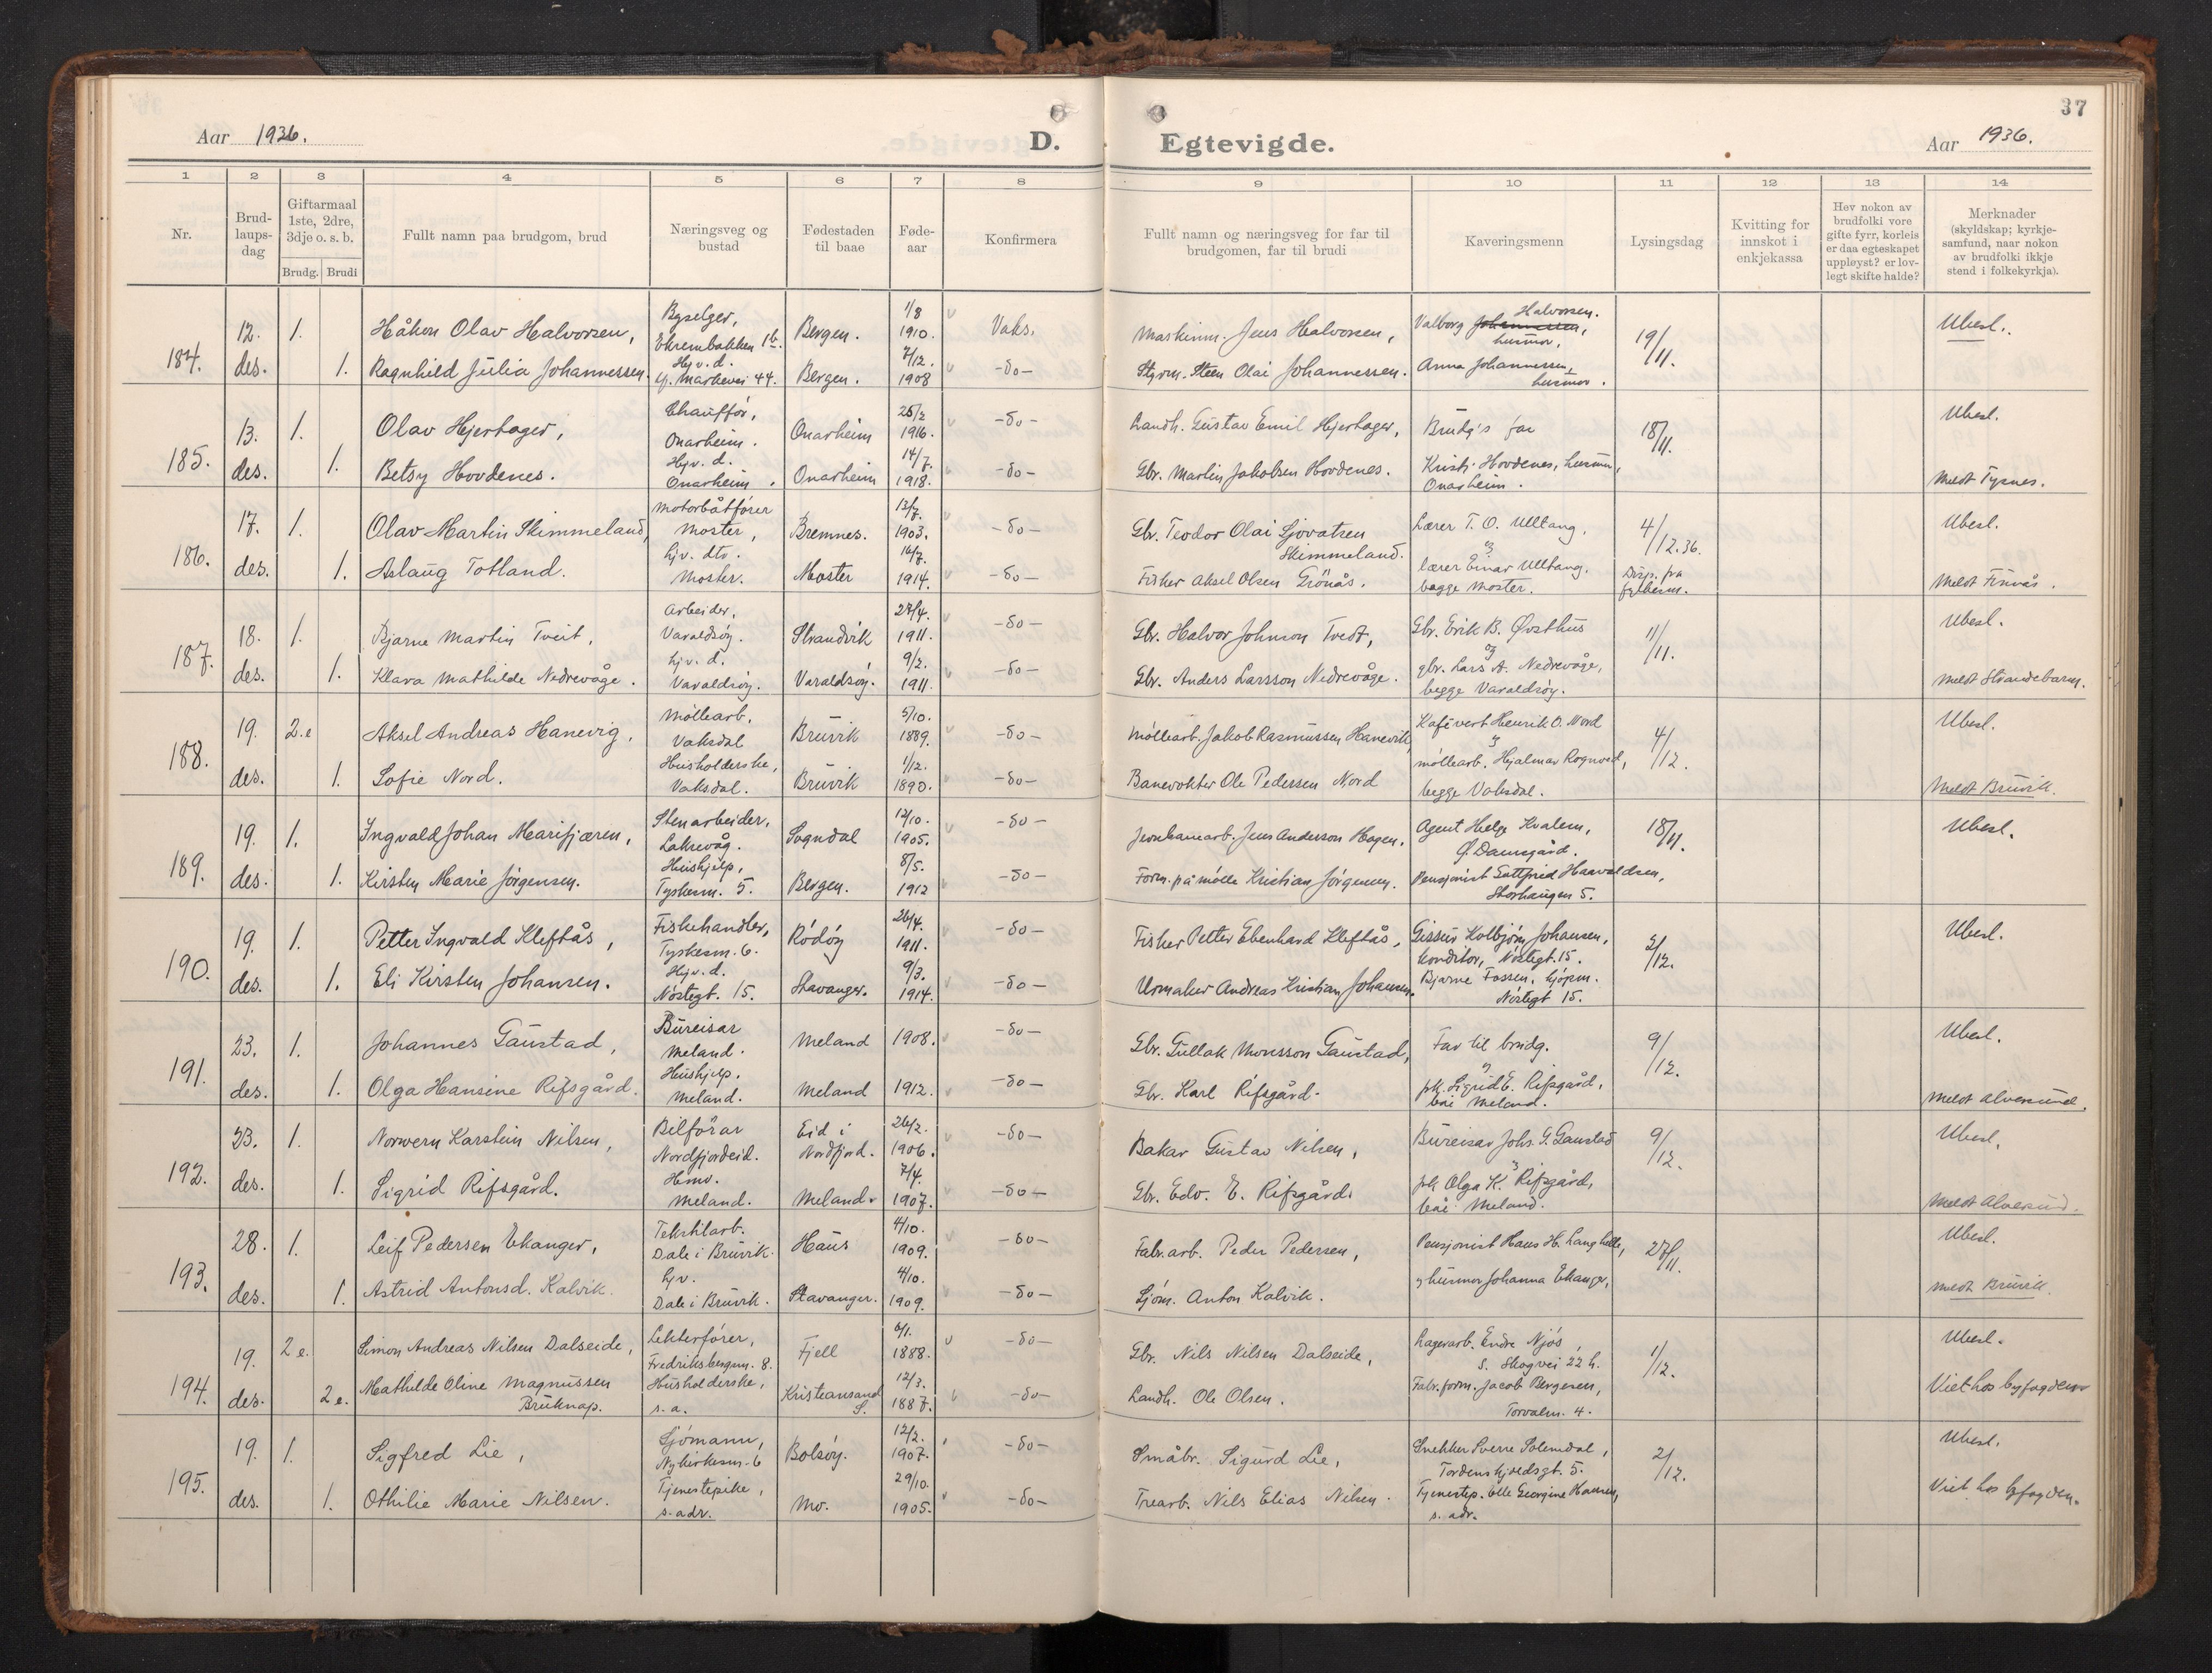 Aar 1936. D. Egtevigde. Aar 1936. 37
1 2 3 4 5 6 7 8 9 10 11 12 13 14
Nr.
Brud-
laups-
dag
Giftarmaal
1ste, 2dre,
3dje o. s. b.
Brudg. Brudi
Fullt namn paa brudgom, brud
Næringsveg og
bustad
Fødestaden
til baae
Føde-
aar
Konfirmera
Fullt namn og næringsveg for far til
brudgomen, far til brudi
Kaveringsmenn
Lysingsdag
Kvitting for
innskot i
enkjekassa
Hev nokon av
brudfolki vore
gifte fyrr, korleis
er daa egteskapet
uppløyst? er lov-
legt skifte halde?
Merknader
(skyldskap; kyrkje-
samfund, naar nokon
av brudfolki ikkje
stend i folkekyrkja).
184.
12. 1. Håkon Olav Halvorsen, Byselger, Bergen. 1/8 1910. Vaks. Maskinm. Jens Halvorsen, Valborg Johannessen, Halvorsen. husmor, 19/11. Ubesl.
des. 1. Ragnhild Julia Johannessen. Hjv. d. Markevei 44. Bergen. 7/12. 1908 -do- Styrm. Steen Olai Johannessen. Anna Johannessen, husmor.
185.
13. 1. Olav Hjertager, Chauffør, Onarheim. Onarheim 25/2 1916. -do- Landh. Gustav Emil Hjertager, Brudg's far 18/11. Ubesl.
des. 1. Betsy Hovdenes. Hjv. d. Onarheim. Onarheim 14/7. 1918. -do- Gbr. Martin Jakobsen Hovdenes. Kristi Hovdenes, husmor, Onarheim. Meldt Tysnes.
186.
17. 1. Olav Martin Skimmeland, Motorbåtfører Moster, Bremnes. 13/7. 1903. -do- Gbr. Teodor Olai Sjovatsen Skimmeland. Lærer T. O. Ulltang. og 4/12.36. Ubesl.
des. 1. Aslaug Totland. hjv. dtr. Moster. Moster 16/7. 1914. -do- Fisker Aksel Olsen Grönås. lærer Einar Ulltang. begge Moster. Disp. fra fylkesm. Meldt Finnås.
187.
18. 1. Bjarne Martin Tveit, Arbeider, Varaldsøy. Strandvik 27/4. 1911. -do- Gbr. Halvor Johnson Tvedt, Gbr. Erik B. Øvsthus og 11/11. Ubesl.
des. 1. Klara Mathilde Nedrevåge. hjv. d. Varaldsøy. Varaldsøy. 9/2. 1911. -do- Gbr. Anders Larsson Nedrevåge. gbr. Lars A. Nedrevåge, begge Varaldsøy. Meldt Strandebarm.
188.
19. 2.e Aksel Andreas Hanevig, Møllearb. Vaksdal Bruvik 5/10. 1889. -do- Møllearb. Jakob Rasmussen Hanevik, Kafévert Henrik O. Nord og 4/12. Ubesl.
des. 1. Sofie Nord. Husholderske, Vaksdal. Bruvik 1/12. 1890. -do- Banevokter Ole Pedersen Nord møllearb. Hjalmar Rognved, begge Vaksdal. Meldt Bruvik.
189.
19. 1. Ingvald Johan Marifjæren, Stenarbeider, Laksevåg. Sogndal 12/10. 1905. -do- Jernbanearb. Jens Anderson Hagen. Agent Helge Kvalem, Ø. Damsgård. 18/11. Ubesl.
des. 1. Kirsten Marie Jørgensen. Hushjelp, Tyskesm. 5. Bergen. 8/5. 1912 -do- Form. på mølle Kristian Jørgensen. Pensjonist Gottfried Haavaldsen, Storhaugen 5.
190.
19. 1. Petter Ingvald Kleftås, Fiskehandler, Tyskesm. 6. Rödöy 26/4. 1911. -do- Fisker Petter Ebenhard Kleftås, Gisseur Kolbjørn Johansen, konditor, Nøstegt. 15. 3/12. Ubesl.
des. 1. Eli Kirsten Johansen. Hjv. d. Nøstegt. 15. Stavanger. 9/3. 1914. -do- Urmaker Andreas Kristian Johansen. Bjarne Fossen, kjøpm. Nøstegt 15.
191.
23. 1. Johannes Gaustad, Bureisar Meland. Meland 1908. -do- Gbr. Gullak Monsson Gaustad, Far til brudg. og 9/12. Ubesl.
des. 1. Olga Hansine Rifsgård. Hushjelp. Meland. Meland 1912. -do- Gbr. Karl Rifsgård. frk. Sigrid E. Rifsgård, båe Meland. Meldt Alversund.
192.
23. 1. Norvern Karstein Nilsen, Bilförar Nordfjordeid. Eid i Nordfjord. 26/2. 1906. -do- Bakar Gustav Nilsen, Bureisar Johs. G. Gaustad og 9/12. Ubesl.
des. 1. Sigrid Rifsgård. Hmv. Meland. Meland. 7/4. 1907. -do- Gbr. Edv. E. Rifsgård. frk Olga K. Rifsgård, båe Meland. Meldt Alversund.
193.
28. 1. Leif Pedersen Ekanger, Tekstilarb. Dale i Bruvik. Haus 4/10. 1909. -do- Fabr.arb. Peder Pedersen, Pensjonist Hans H. Langhelle, 27/11. Ubesl.
des. 1. Astrid Antonsd. Kalvik. hjv. Dale i Bruvik. Stavanger. 4/10. 1909. -do- Sjöm. Anton Kalvik. og husmor Johanna Ekanger, Meldt Bruvik.
194.
19. 2 e. Simon Andreas Nilsen Dalseide, Lekterfører, Fredriksbergsm. 8. Fjell 6/1. 1888. -do- Gbr. Nils Nilsen Dalseide, Lagerarb. Endre Njøs, S. Skogvei 22 h. 1/12. Ubesl.
des. 2 e. Mathilde Oline Magnussen Bruknap. Husholderske, s.a. Kristeansand S. 12/3. 1887. -do- Landh. Ole Olsen. Fabr.form. Jacob Bergesen, Torvalm. 4. Viet hos byfogden
195.
19. 1. Sigfred Lie, Sjömann, Nykirkesm. 6 Bolsøy. 12/2. 1907. -do- Småbr. Sigurd Lie, Snekker Sverre Solemdal, Tordenskjoldsgt. 5. 2/12. Ubesl.
des. 1. Othilie Marie Nilsen. Tjenestepike, s. adr. Mo. 29/10. 1905. -do- Trearb. Nils Elias Nilsen. Tjenestep. Elle Georgine Hansen, s. adr. Viet hos byfogden.